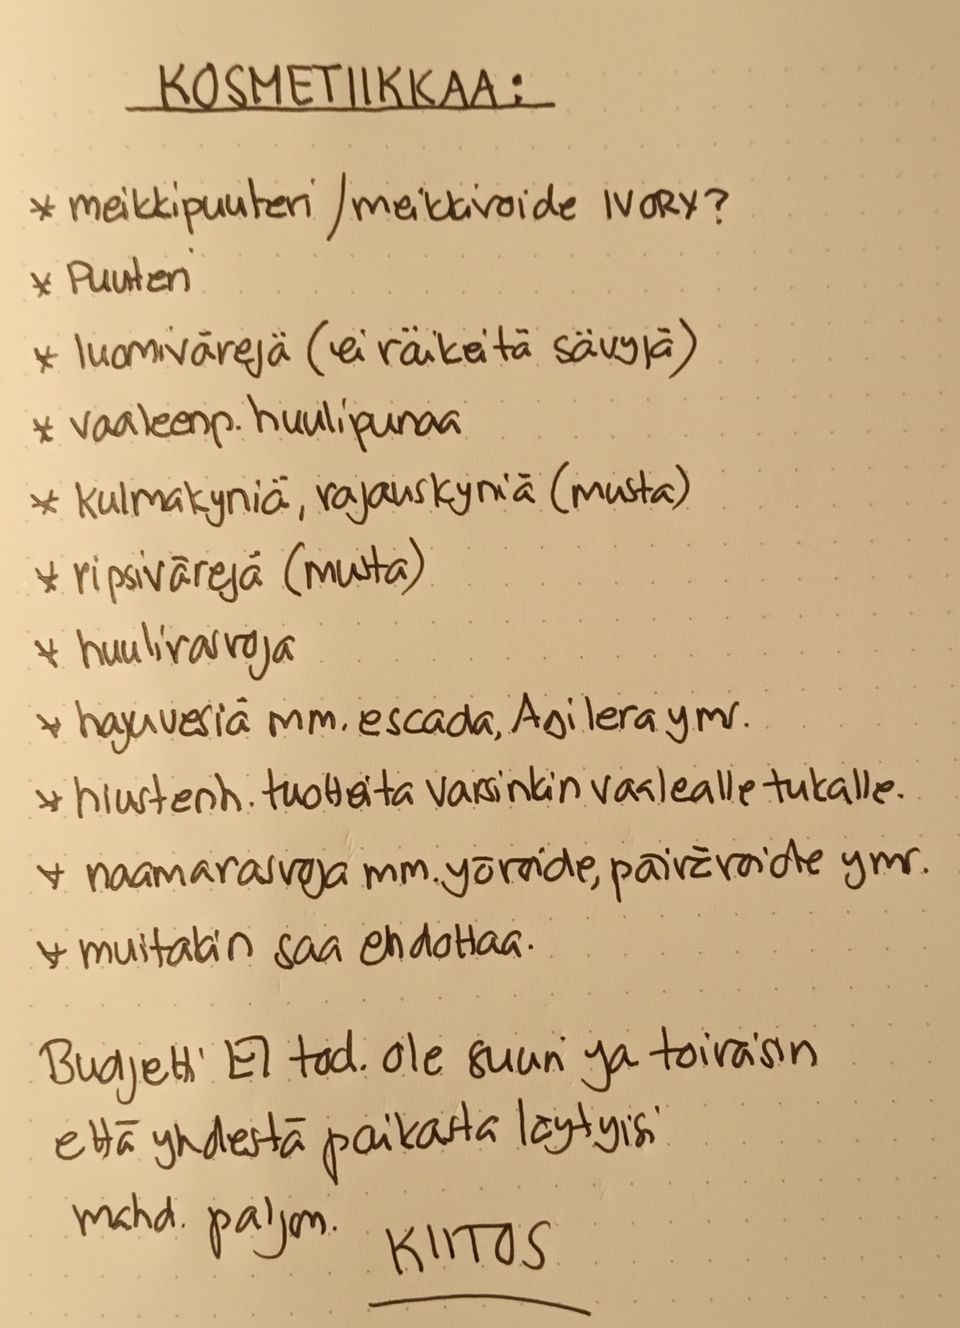 KOSMETIIKKAA:
* meikkipuuteri / meikkivoide IVORY?
* Puuteri
* luomivärejä (ei räikeitä sävyjä)
* vaaleenp. huulipunaa
* kulmakyniä, rajauskyniä (musta)
* ripsivärejä (musta)
* huulirasvoja
* hajuvesiä mm. escada, Agilera ymv.
* hiustenh. tuotteita varsinkin vaalealle tukalle.
* naamarasvoja mm. yövoide, päivävoide ymv.
* muitakin saa ehdottaa.
Budjetti EI tod. ole suuri ja toivoisin
että yhdestä paikasta löytyisi
mahd. paljon.
KIITOS